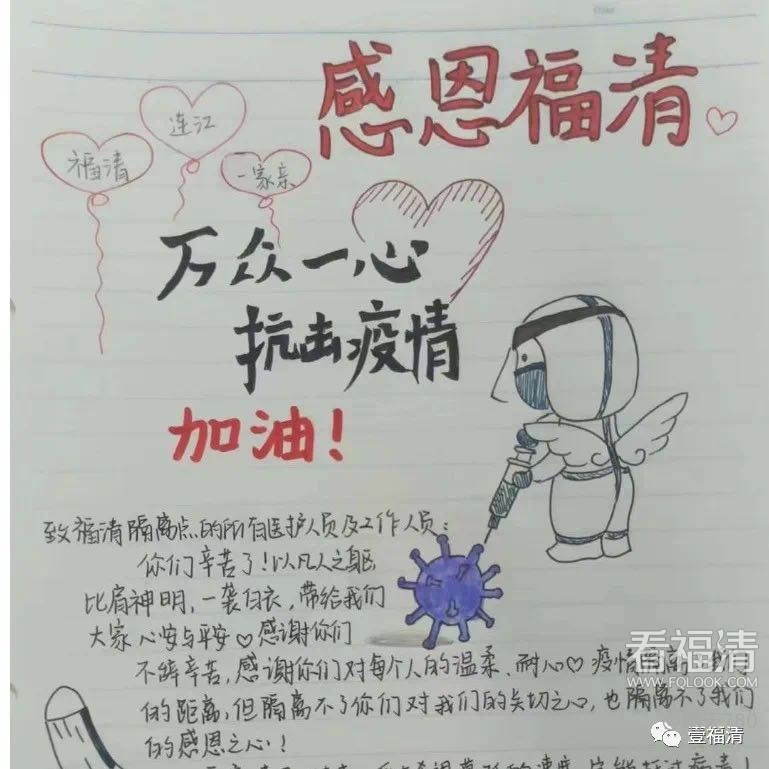 感恩福清
连江
福清
一家亲
万众一心
抗击疫情
加油！
致福清隔离点的所有医护人员及工作人员：
你们辛苦了！以凡人之躯
比肩神明，一袭白衣，带给我们
大家心安与平安♡感谢你们
不辞辛苦，感谢你们对每个人的温柔、耐心♡疫情隔离了我们
的距离，但隔离不了你们对我们的关切之心，也隔离不了我们
的感恩之心！
看福清
WWW.FQLOOK.COM
壹福清